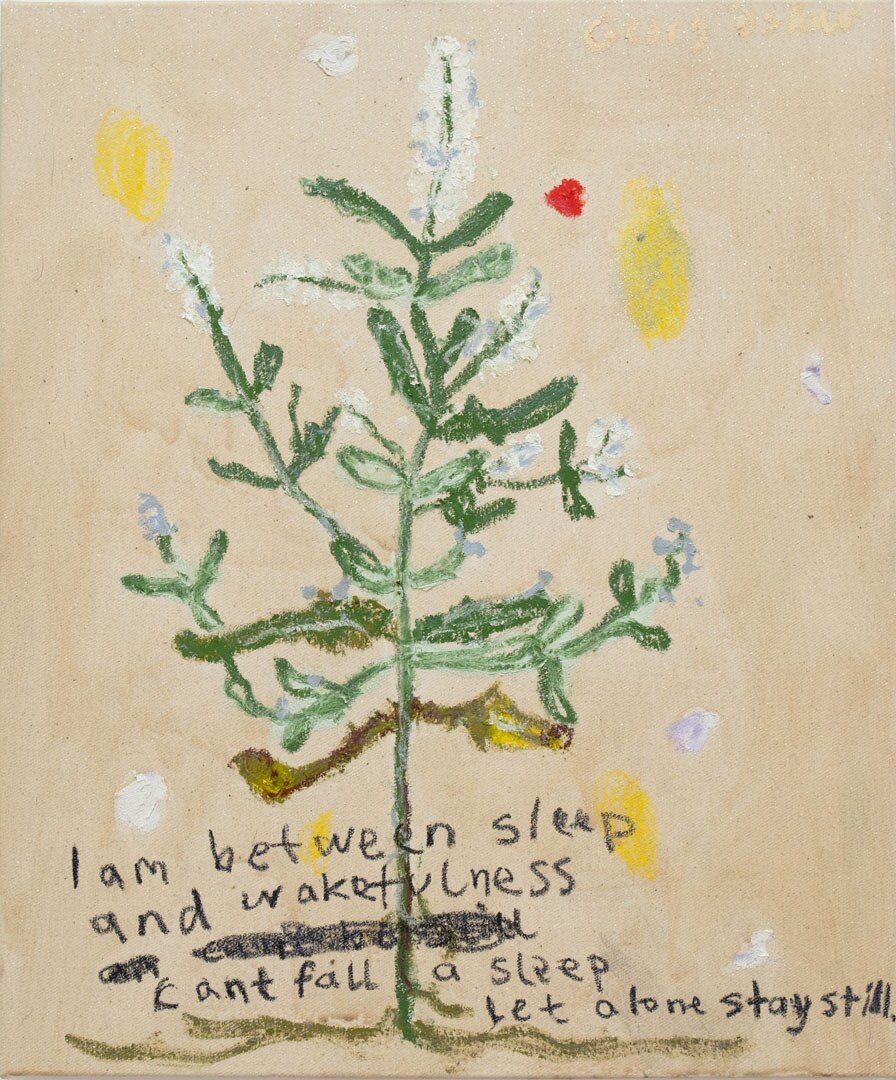 Georg Óskar
I am between sleep
and wakefulness
cant fall a sleep
Let alone stay still.